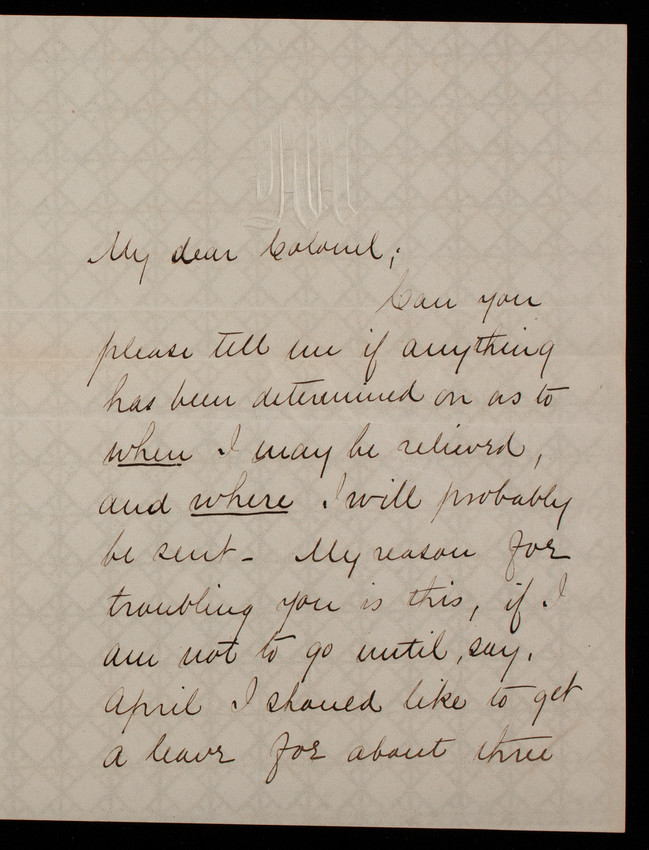 My dear Colonel;
Can you
please tell me if anything
has been determined on as to
when I may be relieved,
and where I will probably
be sent - My reason for
troubling you is this, if I
am not to go until, say,
April I should like to get
a leave for about three